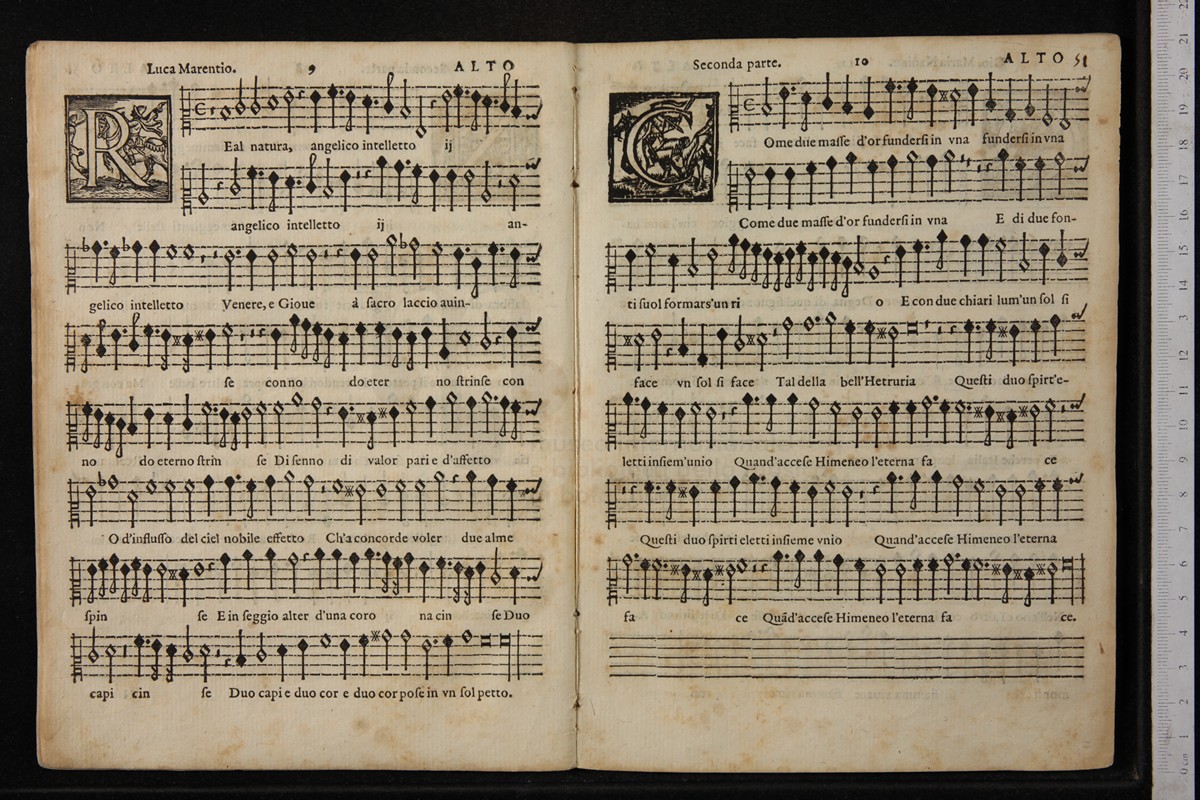 Luca Marentio. 9 ALTO
R Eal natura, angelico intelletto ij
angelico intelletto ij an-
gelico intelletto Venere, e Gioue à sacro laccio auin-
se con no do eter no ſtrinſe con
no do eterno ſtrin ſe Di ſenno di valor pari e d'affetto
O d'influſſo del ciel nobile effetto Ch'a concorde voler due alme
ſpin ſe E in ſeggio alter d'una coro na cin ſe Duo
capi cin ſe Duo capi e duo cor e duo cor poſe in vn ſol petto.
Seconda parte. 10 ALTO 51
C Ome due maſſe d'or funderſi in vna funderſi in vna
Come due maſſe d'or funderſi in vna E di due fon-
ti ſuol formarſ'un ri o E con due chiari lum'un ſol ſi
face vn ſol ſi face Tal della bell'Hetruria Queſti duo ſpirt'e-
letti inſiem'unio Quand'acceſe Himeneo l'eterna fa ce
Queſti duo ſpirti eletti inſieme vnio Quand'acceſe Himeneo l'eterna
fa ce Quãd'acceſe Himeneo l'eterna fa ce.